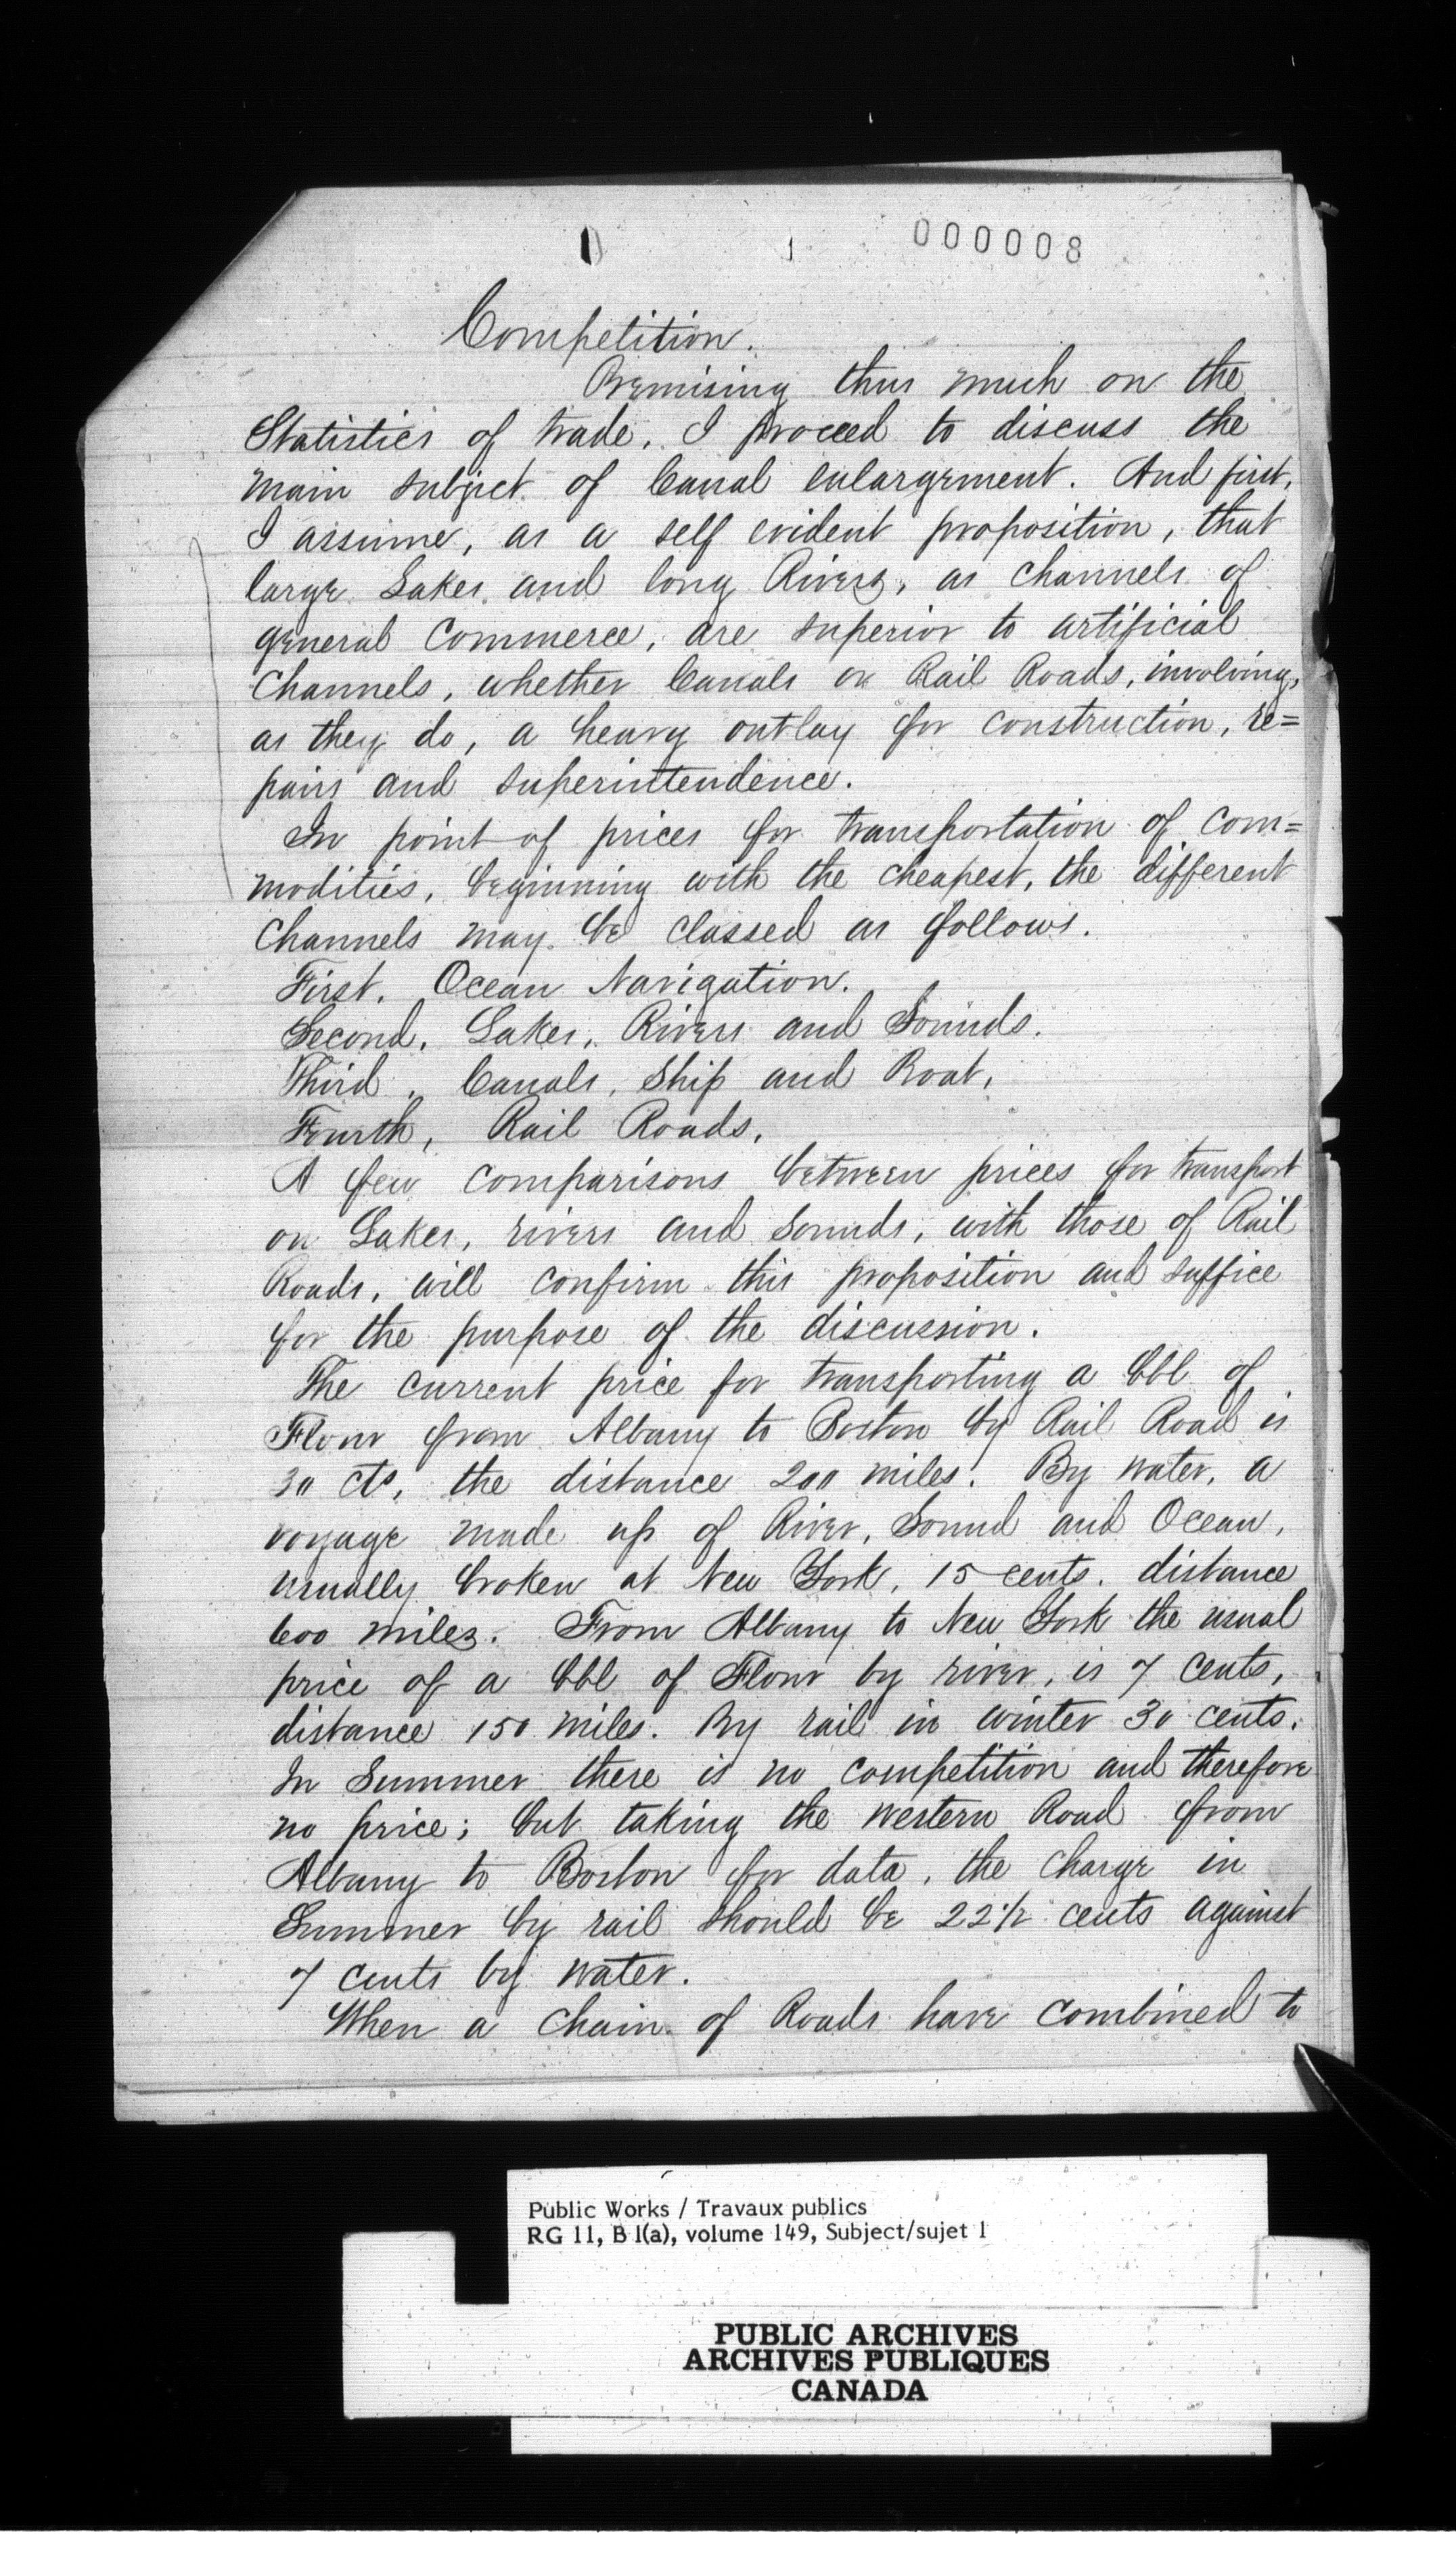 000008
Competition.
Premising thus much on the
Statistics of trade, I proceed to discuss the
main subject of Canal enlargement. And first,
I assume, as a self evident proposition, that
large Lakes and long Rivers, as channels of
general Commerce, are superior to artificial
Channels, whether Canals or Rail Roads, involving,
as they do, a heavy outlay for construction, re=
pairs and superintendence.
In point of prices for transportation of com=
modities, beginning with the cheapest, the different
Channels may be classed as follows.
First. Ocean Navigation.
Second, Lakes, Rivers and Sounds.
Third, Canals, Ship and Boat,
Fourth, Rail Roads,
A few comparisons between prices for transport
on Lakes, rivers and Sounds, with those of Rail
Roads, will confirm this proposition and suffice
for the purpose of the discussion.
The current price for transporting a bbl of
Flour from Albany to Boston by Rail Road is
30 cts, the distance 200 miles. By water, a
voyage made up of River, Sound and Ocean,
usually broken at New York, 15 cents. distance
600 miles. From Albany to New York the usual
price of a bbl of Flour by river, is 7 cents,
distance 150 miles. By rail in winter 30 cents.
In Summer there is no competition and therefore
no price; but taking the western Road from
Albany to Boston for data, the charge in
Summer by rail should be 22 1/2 cents against
7 cents by water.
When a chain of Roads have combined to
Public Works / Travaux publics
RG 11, B 1(a), volume 149, Subject/sujet 1
PUBLIC ARCHIVES
ARCHIVES PUBLIQUES
CANADA